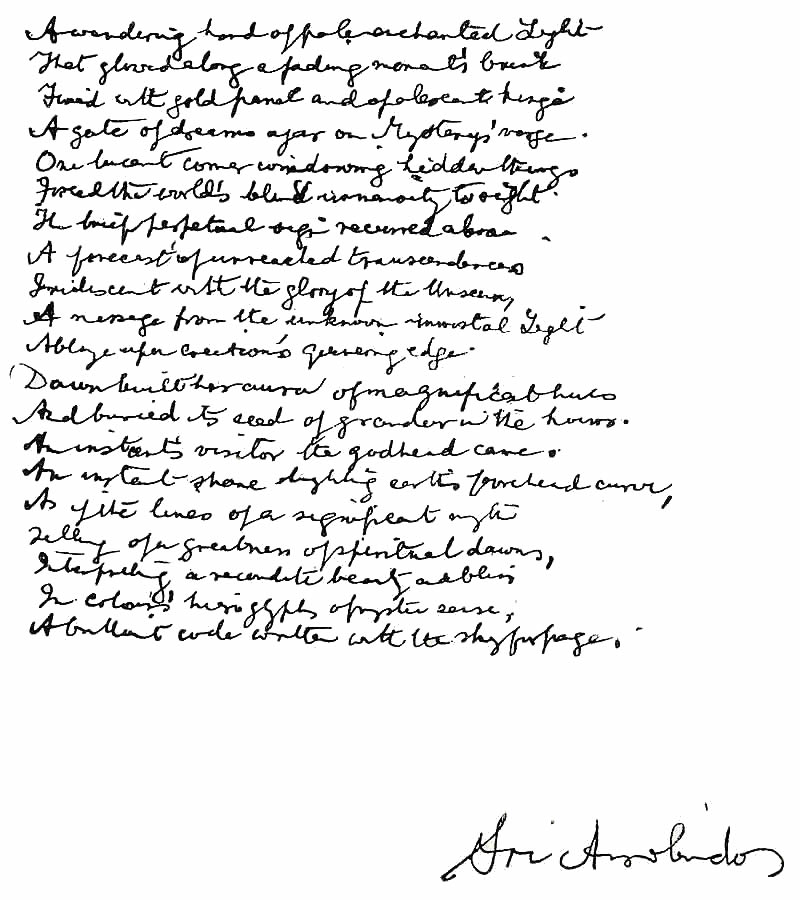 A wandering hand of pale enchanted Light
That glowed along a fading moment's brink
Fixed with gold panel and opalescent hinge
A gate of dreams ajar on Mystery's verge.
One lucent corner windowing hidden things
Forced the world's blind immensity to sight.
The brief perpetual sign recurred above.
A forecast of unreached transcendences
Iridescent with the glory of the Unseen,
A message from the unknown immortal Light
Ablaze upon creation's quivering edge.
Dawn built her aura of magnificent hues
And buried its seed of grandeur in the hours.
An instant's visitor the godhead came.
An instant shone edging earth's forehead curve,
As if the lines of a significant myth
Telling of a greatness of spiritual dawns,
Interpreting a recondite beauty and bliss
In colour's hieroglyphs of mystic sense,
A brilliant code written with the sky for page.
Sri Aurobindo